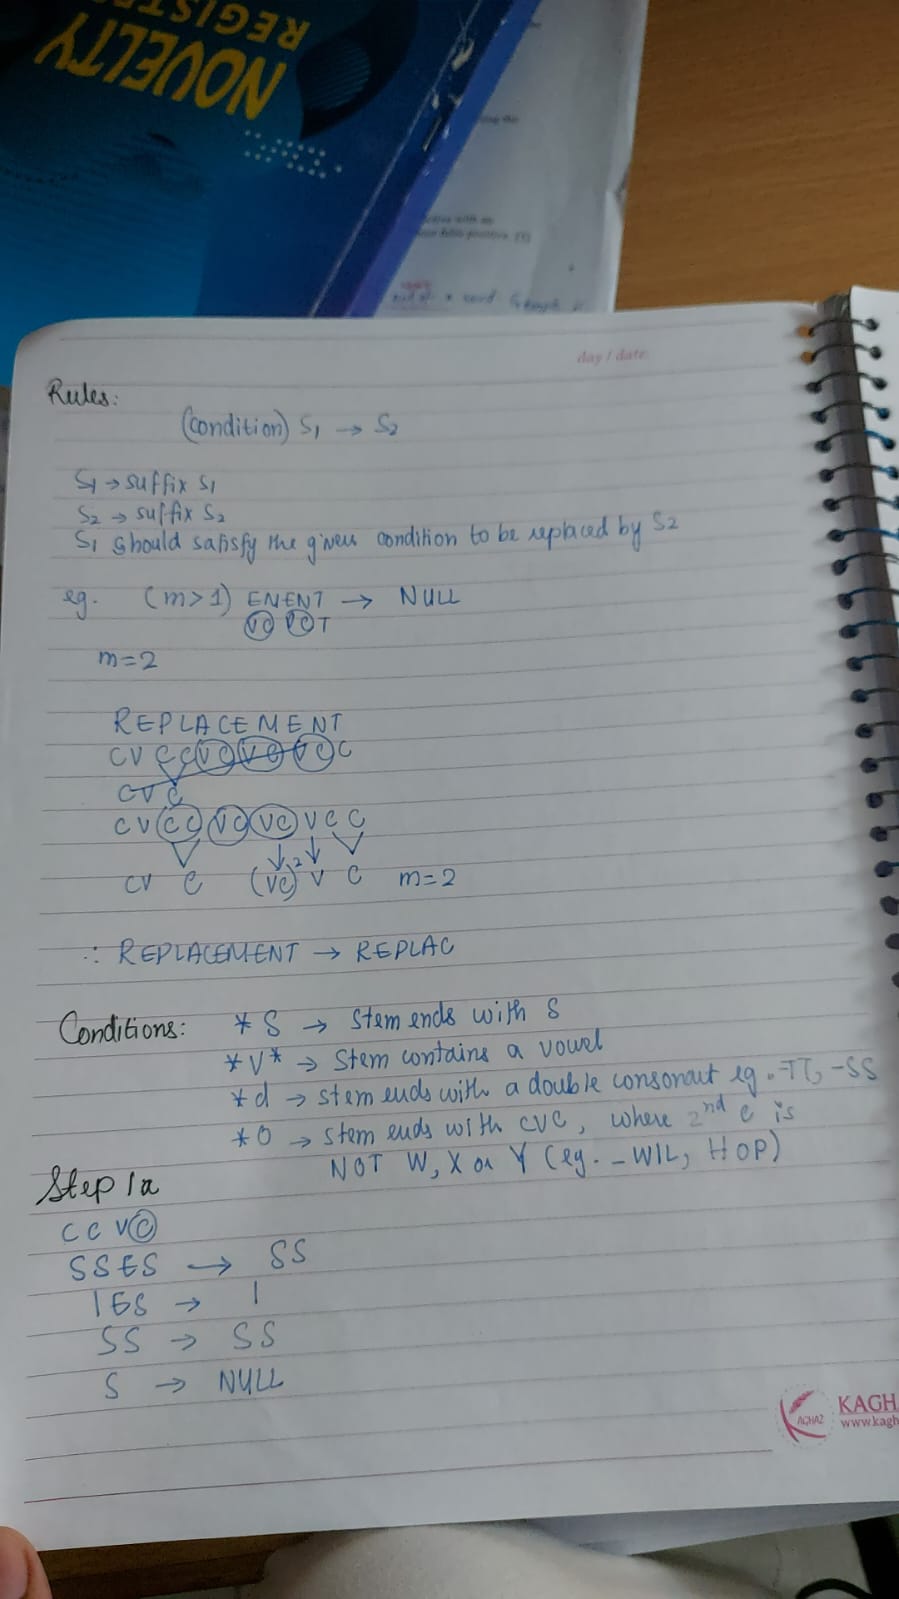 NOVELTY
REGISTE
day / date:
Rules:
(condition) S1 → S2
S1 → suffix S1
S2 → suffix S2
S1 should satisfy the given condition to be replaced by S2
eg. (m>1) ENENT → NULL
VC VC T
m=2
REPLACEMENT
CV CC VC VC VC C
CV C
CV CC VC VC V C C
CV C (VC)2 V C m=2
∴ REPLACEMENT → REPLAC
Conditions: * S → Stem ends with S
* V * → Stem contains a vowel
* d → stem ends with a double consonant eg. -TT, -SS
* O → stem ends with CVC, where 2nd C is
NOT W, X or Y (eg. -WIL, HOP)
Step 1a
CC VC
SSES → SS
IES → I
SS → SS
S → NULL
KAGHAZ
KAGH
www.kagh